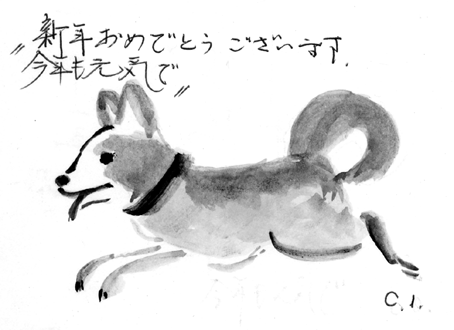 新年おめでとうございます.
"今年も元気で"
C.I.